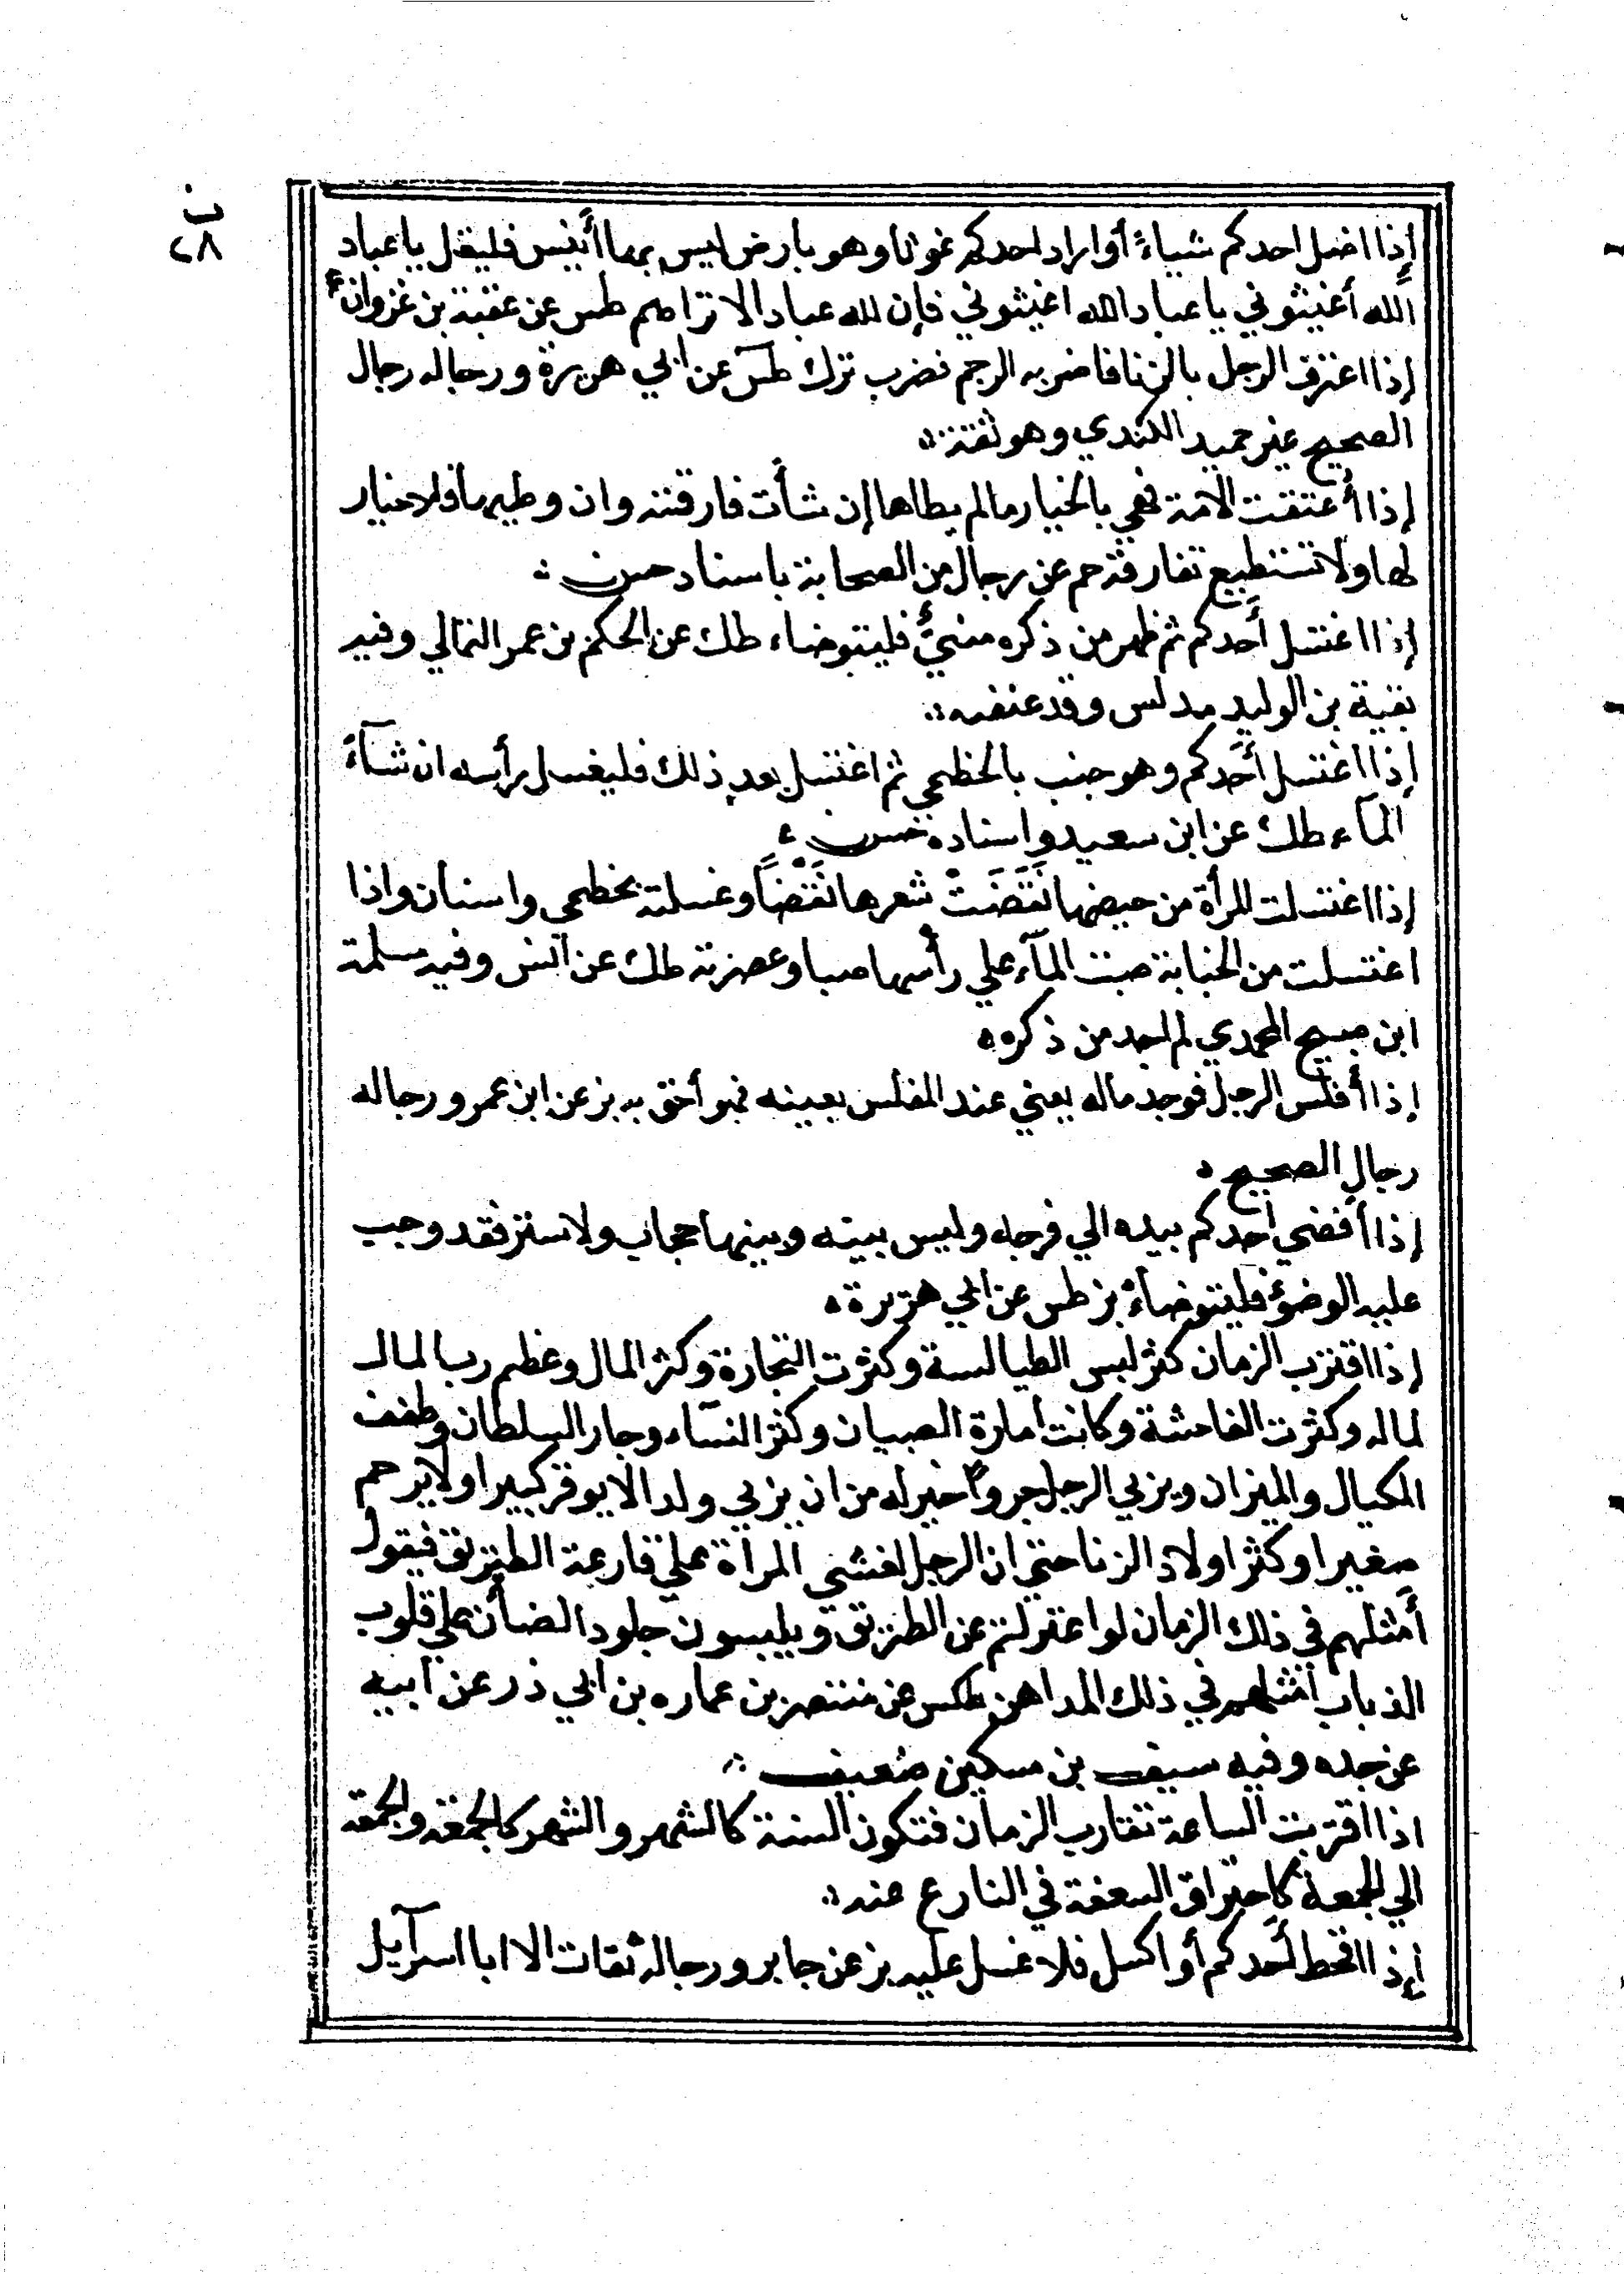 ب
٢٨
إذا اضل احدكم شيئاءً أو اراد احدكم غوثا وهو بارض ليس بهما أنيس فليقل يا عباد
الله أغيثوني يا عباد الله اغيثوني فإن لله عبادا لا تراهم طس عن عقبة بن غزوان
إذا اعترف الرجل بالزنا فاضربه الرجم فضرب ترك طس عن ابي هريرة ورجاله رجال
الصحيح غير حميد الكندي وهو ثقة
إذا أعتقت الامة فهي بالخيار مالم يطاها إن شأت فارقته وان وطيها فلا خيار
لها ولا تستطيع تفارقه حم عن رجال من الصحابة باسناد حسن
إذا اغتسل أحدكم ثم ظهر من ذكره منيٌّ فليتوضاء طك عن الحكم بن عمر الثمالي وفيه
بقية بن الوليد مدلس وقد عنعنه
إذا اغتسل أحدكم وهو جنب بالخطمي ثم اغتسل بعد ذلك فليغسل رأسه ان شآءَ
المآء طك عن ابن سعيد واسناده حسن
إذا اغتسلت المرأة من حيضها نَقَضَتْ شعرها نَقْضًا وغسلته بخطمي واسنان واذا
اغتسلت من الجنابة صبت المآء علي رأسها صبا وعصرته طك عن انس وفيه سلمة
ابن صبيح المحمدي لم اجد من ذكره
إذا أفلس الرجل فوجد ماله يعني عند المفلس بعينه فهو أحق به بز عن ابن عمر ورجاله
رجال الصحيح
إذا أفضي أحدكم بيده الي فرجه وليس بينه وبينها حجاب ولا ستر فقد وجب
عليه الوضؤ فليتوضاء بز طس عن ابي هريرة
إذا اقترب الزمان كثر لبس الطيالسة وكثرت التجارة وكثر المال وعظم رب المال
لماله وكثرت الفاحشة وكانت امارة الصبيان وكثر النسآء وجار السلطان وطفف
المكيال والميزان ويربي الرجل جروا خير له من ان يربي ولدا لا يوقر كبيرا ولا يرحم
صغيرا وكثر اولاد الزنا حتي ان الرجل لغشي المرأة علي قارعة الطريق فيقول
أمثلهم في ذلك الزمان لو اعتزلتم عن الطريق ويلبسون جلود الضأن علي قلوب
الذباب امثلهم في ذلك المداهن طكس عن منتصر بن عماره بن ابي ذر عن ابيه
عن جده وفيه سيف بن مسكين ضعيف
اذا اقتربت الساعة تقارب الزمان فتكون السنة كالشهر والشهر كالجمعة والجمعة
الي الجمعة كاحتراق السعفة في النار ع عنه
إذا اقحط أحدكم أو اكسل فلا غسل عليه بز عن جابر ورجاله ثقات الا ابا اسرآيل